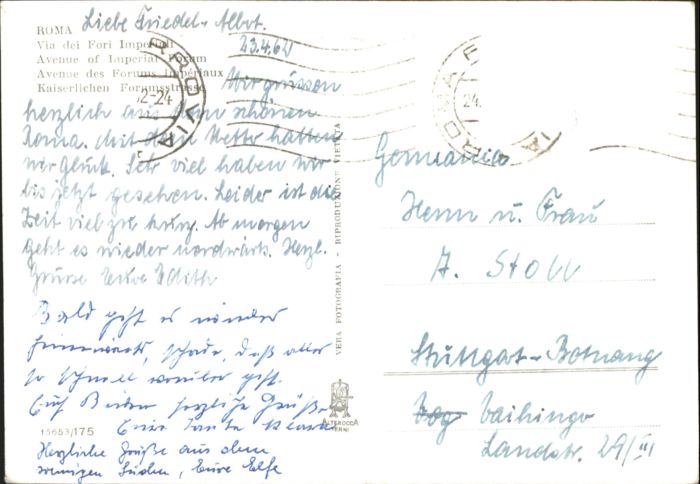 Liebe Friedel + Albert.
ROMA
Via dei Fori Imperiali
Avenue of Imperial Forum
Avenue des Forums Impériaux
Kaiserlichen Forumsstrasse
23.4.62
Wir grüssen
herzlich aus dem schönen
Roma. Mit dem Wetter hatten
wir Glück. Sehr viel haben wir
bis jetzt gesehen. Leider ist die
Zeit viel zu kurz. Ab morgen
geht es wieder nordwärts. Herzl.
Grüsse Eure Edith
Bald geht es wieder
heimwärts, schade, daß alles
so schnell vorüber geht.
Euch Beiden herzliche Grüße
Eure Tante
Herzliche Grüße aus dem
sonnigen Süden, Eure Elfe
15653/175
VERA FOTOGRAFIA - RIPRODUZIONE VIETATA
ALTEROCCA
TERNI
ROMA FERROVIA
24.
Germania
Herrn u. Frau
A. Stoll
Stuttgart-Botnang
Vaihinger
Landstr. 29/III